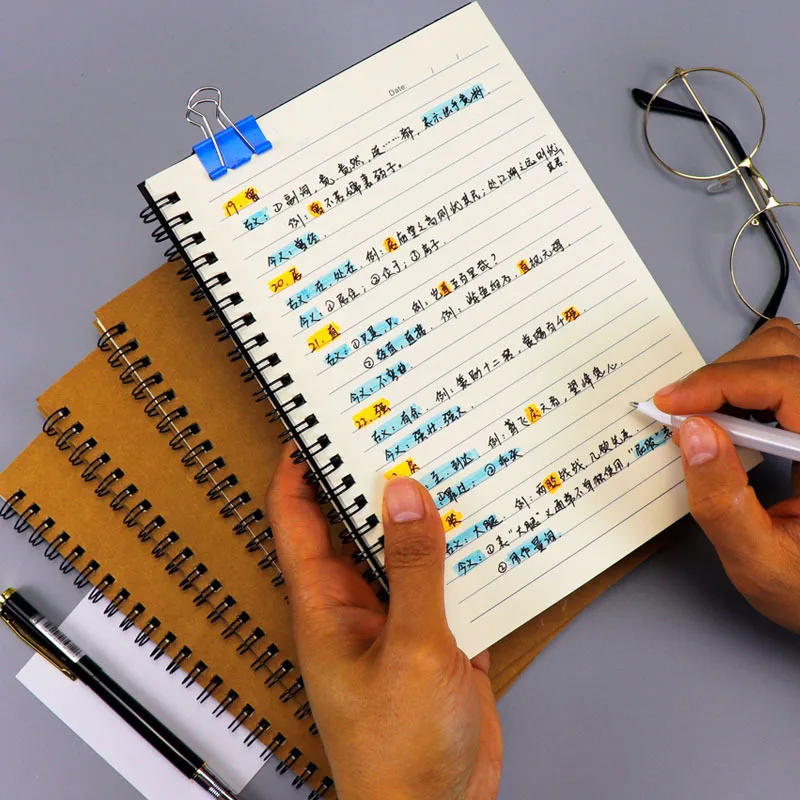 Date: / /
19. 曾
古义：①副词，竟，竟然，连……都，表示出乎意料.
例：曾不若孀妻弱子。
今义：曾经.
20. 居
古义：在，处在. 例：居庙堂之高则忧其民；处江湖之远则忧其君.
今义：①居住；②位于；③房子.
21. 直
古义：①只是，只. 例：岂直五百里哉？
②径直，直接. 例：游鱼细石，直视无碍.
今义：不弯曲.
22. 强
古义：有余. 例：策勋十二转，赏赐百千强.
今义：强壮，强大.
戾
至，到达. 例：鸢飞戾天者，望峰息心.
①罪过；②乖张
股
古义：大腿. 例：两股战战，几欲先走.
今义：①表"大腿"义 不单独使用，"屁股
②用作量词.